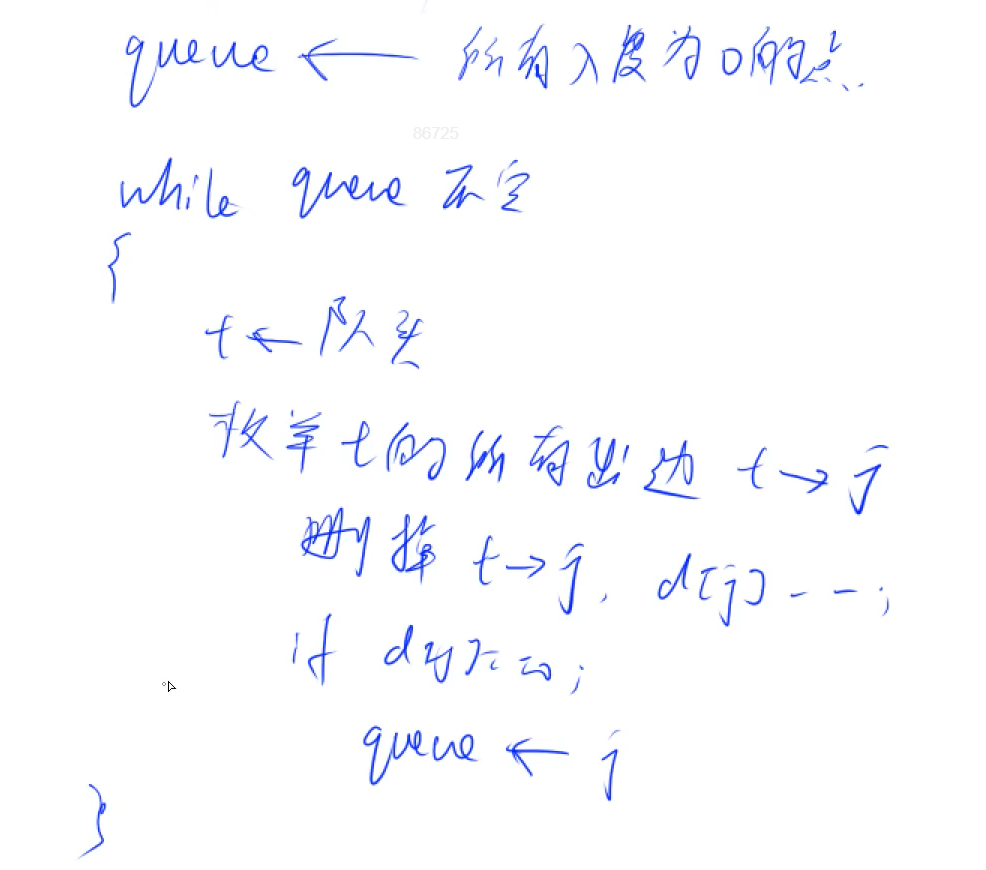 queue ← 所有入度为0的点
86725
while queue 不空
{
t ← 队头
枚举 t的所有出边 t → j
删掉 t → j, d[j] --;
if d[j] == 0;
queue ← j
}